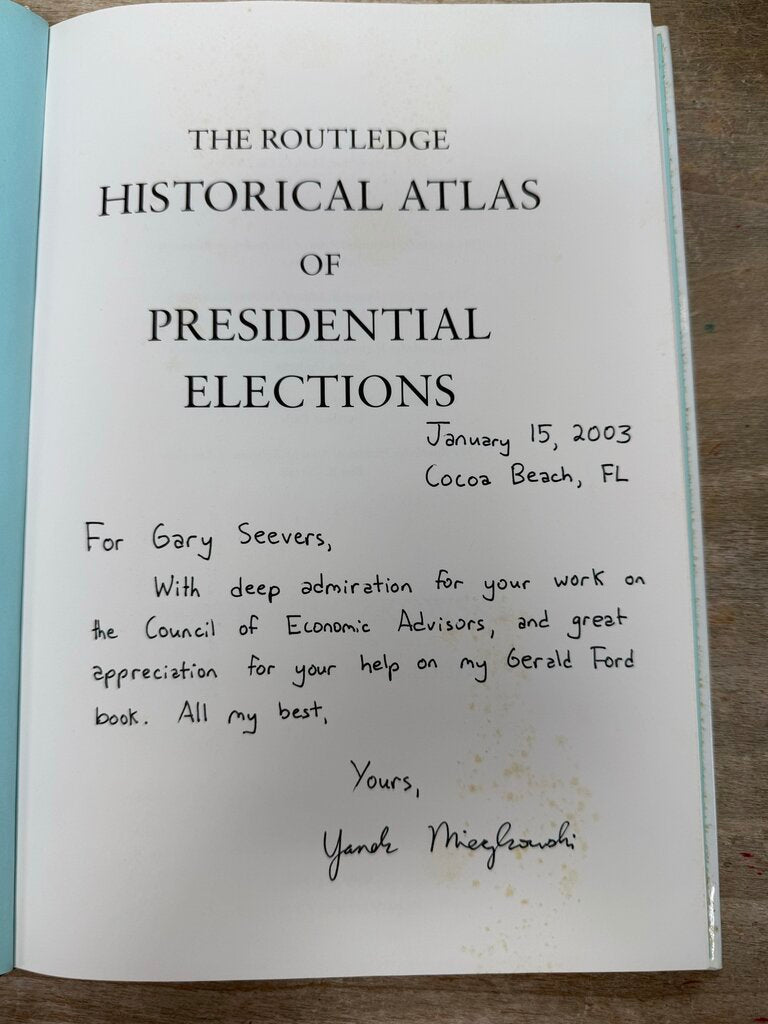 THE ROUTLEDGE
HISTORICAL ATLAS
OF
PRESIDENTIAL
ELECTIONS
January 15, 2003
Cocoa Beach, FL
For Gary Seevers,
With deep admiration for your work on
the Council of Economic Advisors, and great
appreciation for your help on my Gerald Ford
book. All my best,
Yours,
Yanek Mieczkowski